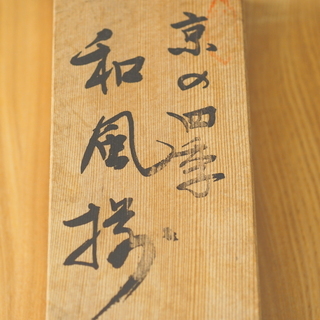 京の四季
和風揃